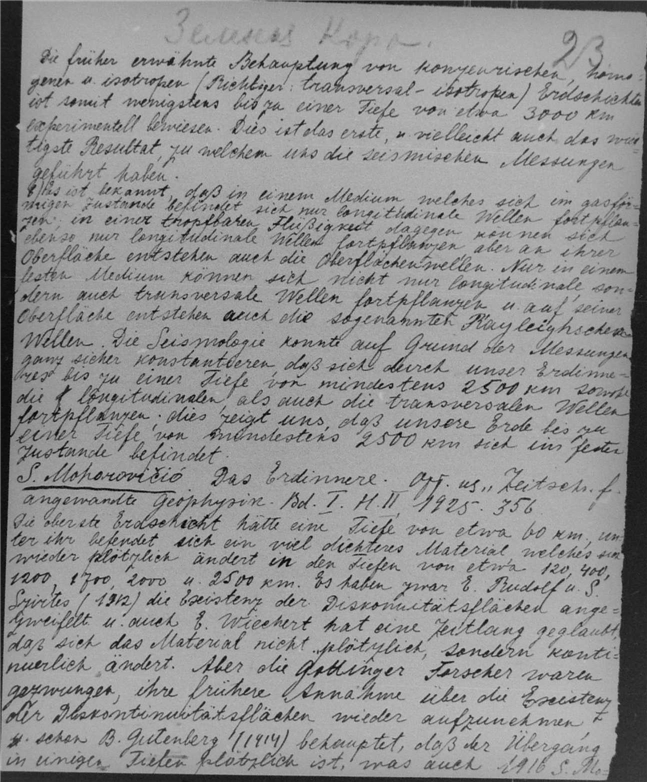 Земная Кора.
23
Die früher erwähnte Behauptung von konzentrischen, homo-
genen u. isotropen (Richtiger: transversal-isotropen) Erdschichten
ist somit wenigstens bis zu einer Tiefe von etwa 3000 km
experimentell bewiesen. Dies ist das erste, u vielleicht auch das wich-
tigste Resultat zu welchem uns die seismischen Messungen
geführt haben.
Es ist bekannt, daß in einem Medium welches sich im gasför-
migen Zustande befindet sich nur longitudinale Wellen fortpflan-
zen; in einer tropfbaren Flüßigkeit dagegen können sich
ebenso nur longitudinale Wellen fortpflanzen aber an ihrer
Oberfläche entstehen auch die Oberflächenwellen. Nur in einem
festen Medium können sich nicht nur longitudinale son-
dern auch transversale Wellen fortpflanzen u. auf seiner
Oberfläche entstehen auch die sogenannten Rayleighschen
Wellen. Die Seismologie konnte auf Grund der Messungen
ganz sicher konstantieren, daß sich durch unser Erdinne-
res bis zu einer Tiefe von mindestens 2500 km sowohl
die longitudinalen als auch die transversalen Wellen
fortpflanzen. dies zeigt uns, daß unsere Erde bis zu
einer Tiefe von mindestens 2500 km sich im festen
Zustande befindet.
S. Mohorovičić Das Erdinnere. Отт. из „Zeitschr. f.
angewandte Geophysik. Bd. I. H. II 1925. 356
Die oberste Erdschicht hätte eine Tiefe von etwa 60 km, un-
ter ihr befindet sich ein viel dichteres Material, welches sich
wieder plötzlich ändert in den Tiefen von etwa 120, 400,
1200, 1700, 2000 u. 2500 km. Es haben zwar E. Rudolf u. S.
Szirtes (1912) die Existenz der Diskonuitätsflächen ange-
zweifelt u. auch E. Wiechert hat eine Zeitlang geglaubt,
daß sich das Material nicht plötzlich, sondern konti-
nuerlich ändert. Aber die Göttinger Forscher waren
gezwungen, ihre frühere Annahme über die Existenz
der Diskontinuitätsflächen wieder aufzunehmen
u. schon B. Gutenberg (1914) behauptet, daß der Übergang
in einigen Tiefen plötzlich ist, was auch 1916 S. Mo-